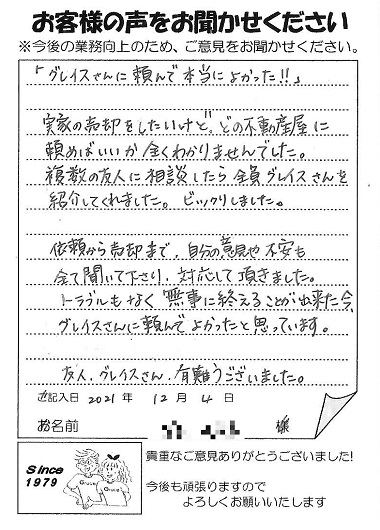 お客様の声をお聞かせください
※今後の業務向上のため、ご意見をお聞かせください。
「グレイスさんに頼んで本当によかった!!」
実家の売却をしたいけど、どの不動産屋に
頼めばいいか全くわかりませんでした。
複数の友人に相談したら全員グレイスさんを
紹介してくれました。ビックリしました。
依頼から売却まで、自分の意見や不安も
全て聞いて下さり、対応して頂きました。
トラブルもなく無事に終えることが出来た今、
グレイスさんに頼んでよかったと思っています。
友人、グレイスさん、有難うございました。
ご記入日 2021 年 12 月 4 日
お名前 様
Since
1979
Grace
Grace
貴重なご意見ありがとうございました!
今後も頑張りますので
よろしくお願いいたします